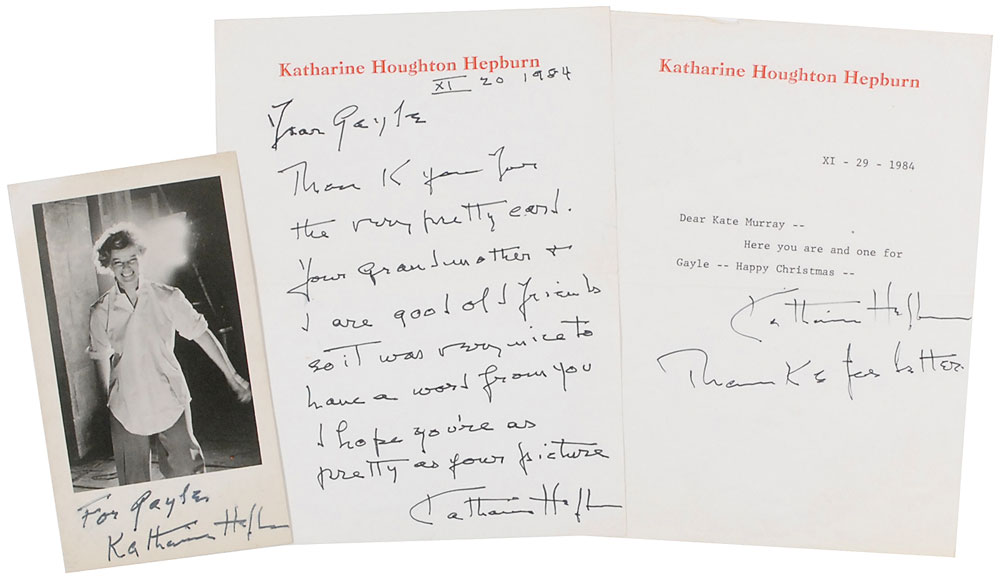 For Gayle
Katharine Hepburn
Katharine Houghton Hepburn
XI 20 1984
Dear Gayle
Thank you for
the very pretty card.
Your grandmother +
I are good old friends
so it was very nice to
have a word from you
I hope you're as
pretty as your picture
Katharine Hepburn
Katharine Houghton Hepburn
XI - 29 - 1984
Dear Kate Murray --
Here you are and one for
Gayle -- Happy Christmas --
Katharine Hepburn
Thanks for letter.